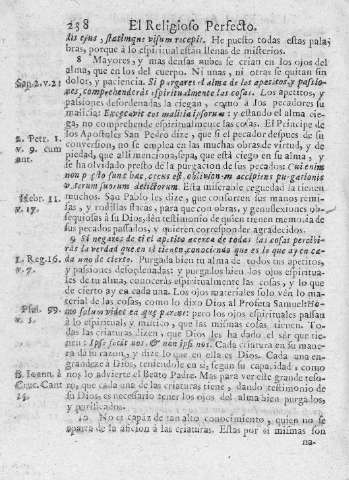 238 El Religioso Perfecto.
dis ejus, statimque visum recepit. He puesto todas estas palabras, porque à lo espiritual estàn llenas de misterios.
8 Mayores, y mas densas nubes se crian en los ojos del
alma, que en los del cuerpo. Ni unas, ni otras se quitan sin
Sap. 2. v. 21
dolor, y paciencia. Si purgares el alma de los apetitos, y passiones, comprehenderàs espiritualmente las cosas. Los apetitos, y
passiones desordenadas la ciegan, como à los pecadores su
malicia: Excæcavit eos malitia ipsorum: y estando el alma ciega, no comprehende espiritualmente las cosas. El Principe de
2. Petr. 1. v. 9. cum ant.
los Apostoles San Pedro dize, que si el pecador despues de su
conversion, no se emplea en las muchas obras de virtud, y de
piedad, que alli menciona, sepa, que està ciego en su alma, y
se ha olvidado presto de la purgacion de sus pecados: Cui enim
non præsto sunt hæc, cæcus est, oblivionem accipiens purgationis
veterum suorum delictorum. Esta miserable ceguedad la tienen
Hebr. 11. v. 17.
muchos. San Pablo les dize, que conforten sus manos remisas, y rodillas flacas, para que con obras, y genuflexiones obsequiosas à su Dios, den testimonio de quien tienen memoria de
sus pecados passados, y quieren corresponder agradecidos.
9. Si negares de ti el apetito acerca de todas las cosas percibiràs la verdad que en el tienen, conociendo que es lo que ay en cada uno de cierto.
1. Reg. 16. v. 7.
Purgando bien tu alma de todos tus apetitos,
y passiones desordenadas: y purgados bien los ojos espirituales de tu alma, conoceràs espiritualmente las cosas, y lo que
de cierto ay en cada una. Los ojos materiales solo vèn lo material de las cosas, como lo dixo Dios al Profeta Samuel: Homo solum videt ea quæ parent:
Psal. 99. v. 3.
pero los ojos espirituales passan
à lo espiritual, y mistico, que las mismas cosas tienen. Todas las criaturas dizen, que Dios les ha dado el sèr que tienen: Ipse fecit nos, & non ipsi nos. Cada criatura en su manera dà su razon, y dize lo que en ella es Dios. Cada una engrandece à Dios, teniendole en sì, segun su capacidad, como
B. Ioann. à Cruc. Cant 14.
nos lo advierte el Beato Padre. Mas para ver este grande tesoro, que cada una de las criaturas tiene, dando testimonio de
su Dios, es necesario tener los ojos del alma bien purgados,
y purificados.
10. No es capàz de tan alto conocimiento, quien no se
aparta de la aficion à las criaturas. Estas por si mismas son
na-